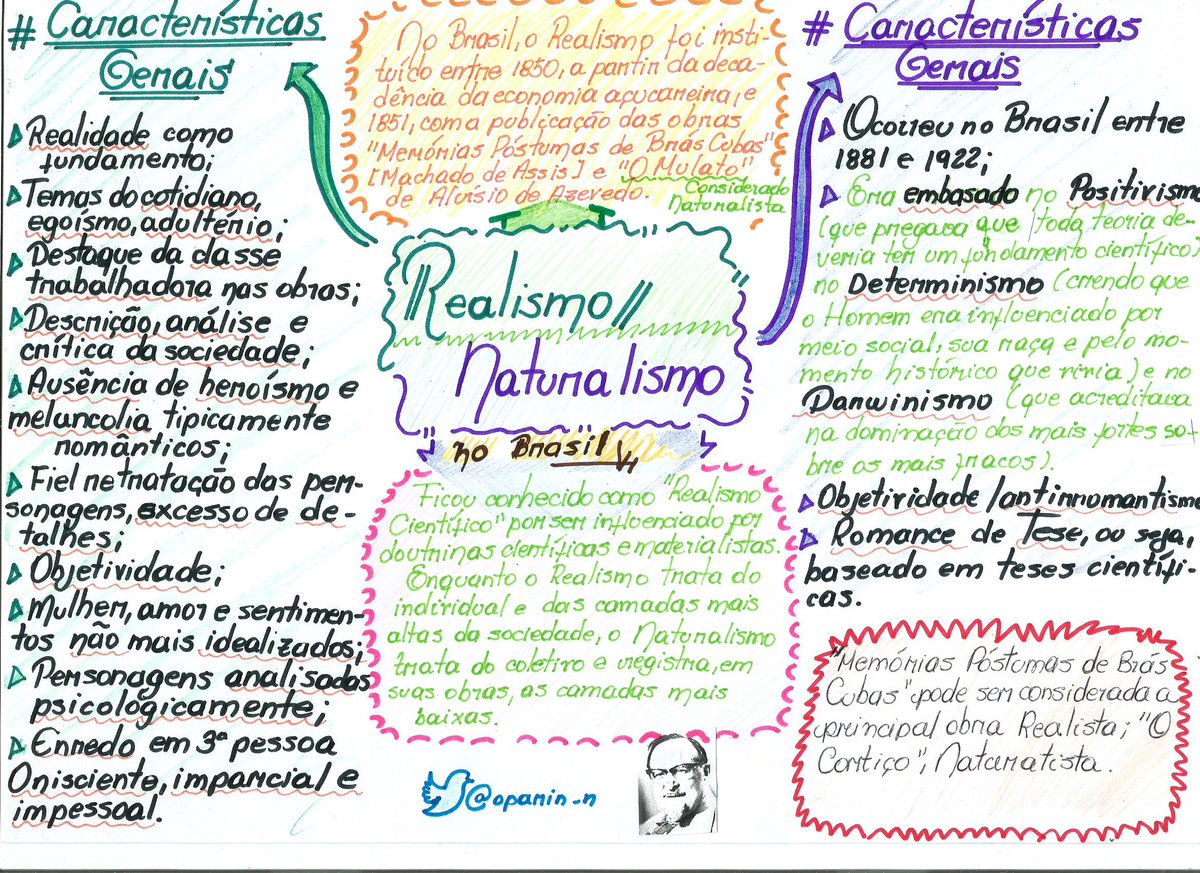 # Características
Gerais
Realidade como
fundamento;
Temas do cotidiano,
egoísmo, adultério;
Destaque da classe
trabalhadora nas obras;
Descrição, análise e
crítica da sociedade;
Ausência de heroísmo e
melancolia tipicamente
românticos;
Fiel retratação das per-
sonagens, excesso de de-
talhes;
Objetividade;
Mulher, amor e sentimen-
tos não mais idealizados;
Personagens analisados
psicologicamente;
Enredo em 3ª pessoa
Onisciente, imparcial e
impessoal.
No Brasil, o Realismo foi insti-
tuído entre 1850, a partir da deca-
dência da economia açucareira, e
1851, com a publicação das obras
"Memórias Póstumas de Brás Cubas"
[Machado de Assis] e "O Mulato"
de Aluísio de Azevedo.
Considerado
Naturalista
Realismo//
Naturalismo
no Brasil
Ficou conhecido como "Realismo
Científico" por ser influenciado por
doutrinas científicas e materialistas.
Enquanto o Realismo trata do
individual e das camadas mais
altas da sociedade, o Naturalismo
trata do coletivo e registra, em
suas obras, as camadas mais
baixas.
@oparin_n
# Características
Gerais
Ocorreu no Brasil entre
1881 e 1922;
Era embasado no Positivism
(que pregava que toda teoria de-
veria ter um fundamento científico)
no Determinismo (crendo que
o Homem era influenciado por
meio social, sua raça e pelo mo-
mento histórico que vivia) e no
Darwinismo (que acreditava
na dominação dos mais fortes so-
bre os mais fracos).
Objetividade/antirromantism
Romance de Tese, ou seja,
baseado em teses científi-
cas.
"Memórias Póstumas de Brás
Cubas" pode ser considerada a
principal obra Realista; "O
Cortiço", Naturatista.